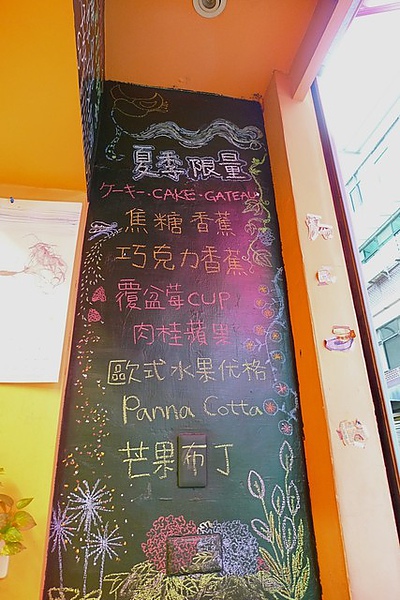 夏季限量
ケーキ・CAKE・GATEAU
焦糖香蕉
巧克力香蕉
覆盆莓CUP
肉桂蘋果
歐式水果优格
Panna Cotta
芒果布丁